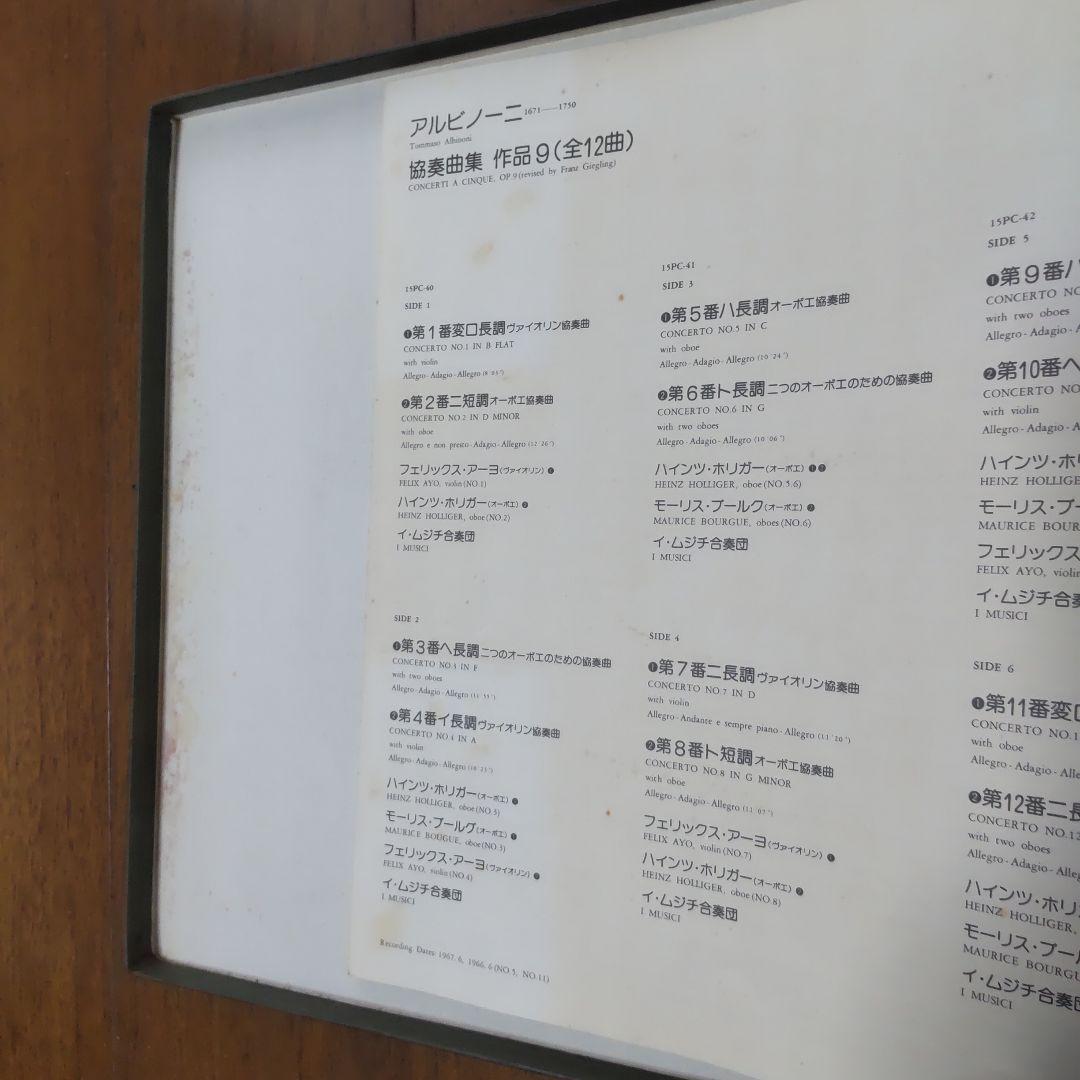 アルビノーニ 1671——1750
Tommaso Albinoni
協奏曲集 作品9(全12曲)
CONCERTI A CINQUE, OP.9 (revised by Franz Giegling)
15PC-40
SIDE 1
❶第1番変ロ長調ヴァイオリン協奏曲
CONCERTO NO.1 IN B FLAT
with violin
Allegro - Adagio - Allegro
❷第2番ニ短調オーボエ協奏曲
CONCERTO NO.2 IN D MINOR
with oboe
Allegro e non presto - Adagio - Allegro (12′26″)
フェリックス・アーヨ(ヴァイオリン)❶
FELIX AYO, violin (NO.1)
ハインツ・ホリガー(オーボエ)❷
HEINZ HOLLIGER, oboe (NO.2)
イ・ムジチ合奏団
I MUSICI
SIDE 2
❶第3番ヘ長調二つのオーボエのための協奏曲
CONCERTO NO.3 IN F
with two oboes
Allegro - Adagio - Allegro
❷第4番イ長調ヴァイオリン協奏曲
CONCERTO NO.4 IN A
with violin
Allegro - Adagio - Allegro
ハインツ・ホリガー(オーボエ)❶
HEINZ HOLLIGER, oboe (NO.3)
モーリス・ブールグ(オーボエ)❶
MAURICE BOUGUE, oboe (NO.3)
フェリックス・アーヨ(ヴァイオリン)❷
FELIX AYO, violin (NO.4)
イ・ムジチ合奏団
I MUSICI
Recording Dates: 1967. 6, 1966. 6 (NO.5, NO.11)
15PC-41
SIDE 3
❶第5番ハ長調オーボエ協奏曲
CONCERTO NO.5 IN C
with oboe
Allegro - Adagio - Allegro (10′24″)
❷第6番ト長調二つのオーボエのための協奏曲
CONCERTO NO.6 IN G
with two oboes
Allegro - Adagio - Allegro (10′06″)
ハインツ・ホリガー(オーボエ)❶❷
HEINZ HOLLIGER, oboe (NO.5.6)
モーリス・ブールク(オーボエ)❷
MAURICE BOURGUE, oboes (NO.6)
イ・ムジチ合奏団
I MUSICI
SIDE 4
❶第7番ニ長調ヴァイオリン協奏曲
CONCERTO NO.7 IN D
with violin
Allegro - Andante e sempre piano - Allegro (11′20″)
❷第8番ト短調オーボエ協奏曲
CONCERTO NO.8 IN G MINOR
with oboe
Allegro - Adagio - Allegro (11′07″)
フェリックス・アーヨ(ヴァイオリン)❶
FELIX AYO, violin (NO.7)
ハインツ・ホリガー(オーボエ)❷
HEINZ HOLLIGER, oboe (NO.8)
イ・ムジチ合奏団
I MUSICI
15PC-42
SIDE 5
❶第9番ハ
CONCERTO NO
with two oboes
Allegro - Adagio - A
❷第10番ヘ
CONCERTO NO
with violin
Allegro - Adagio - A
ハインツ・ホリ
HEINZ HOLLIGE
モーリス・ブー
MAURICE BOUR
フェリックス
FELIX AYO, violin
イ・ムジチ合奏
I MUSICI
SIDE 6
❶第11番変ロ
CONCERTO NO.1
with oboe
Allegro - Adagio - Alle
❷第12番ニ長
CONCERTO NO.12
with two oboes
Allegro - Adagio - Alle
ハインツ・ホリ
HEINZ HOLLIGER,
モーリス・ブール
MAURICE BOURGU
イ・ムジチ合奏団
I MUSICI